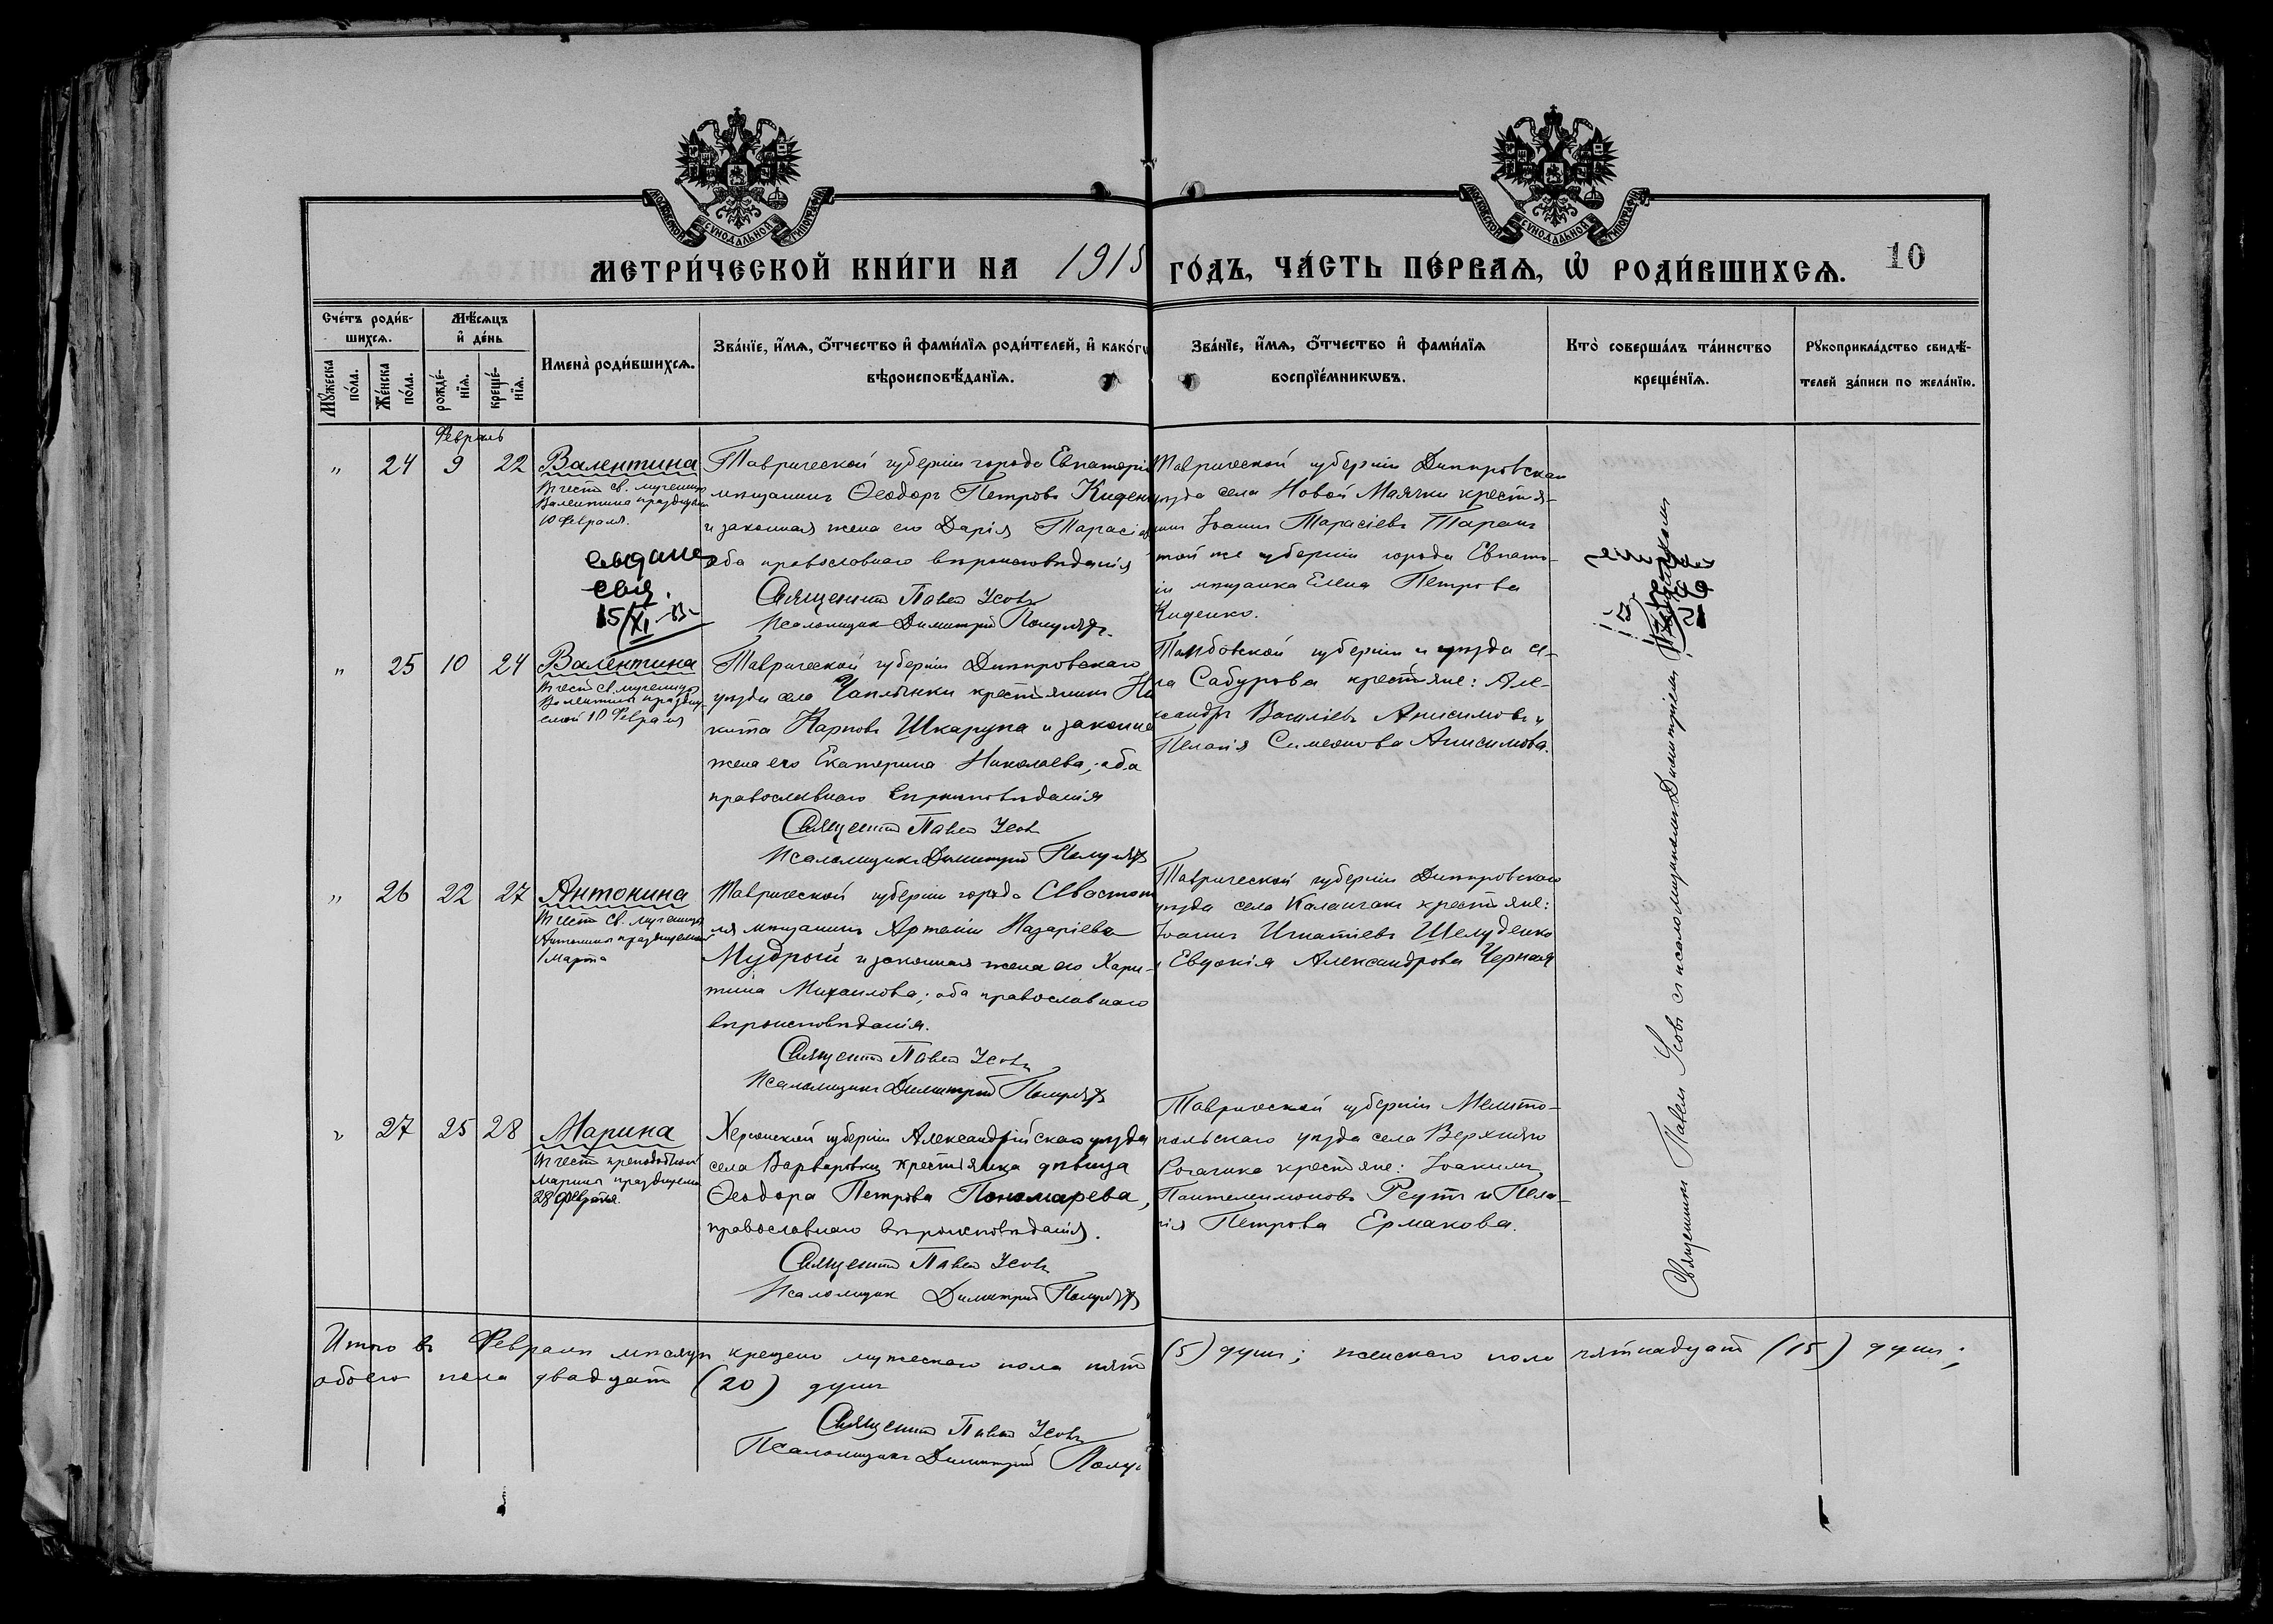 МОСКОВСКОЙ СѴНОДАЛЬНОЙ ТИПОГРАФІИ
МОСКОВСКОЙ СѴНОДАЛЬНОЙ ТИПОГРАФІИ
МЕТРИ́ЧЕСКОЙ КНИ́ГИ НА 1915 ГО́ДЪ, ЧА́СТЬ ПЕ́РВАѦ, Ѡ РОДИ́ВШИХСѦ.
10
Сче́тъ роди́в-
шихсѧ.
Мѣ́сѧцъ
и҆ де́нь
Мꙋ́жеска по́ла.
Же́нска по́ла.
рожде́-
нїѧ.
креще́-
нїѧ.
Имена̀ роди́вшихсѧ.
Зва́нїе, и҆́мѧ, ѻ҆́тчество и҆ фами́лїѧ роди́телей, и҆ како́гѡ
вѣроисповѣ́данїѧ.
Зва́нїе, и҆́мѧ, ѻ҆́тчество и҆ фами́лїѧ
воспрїе́мникѡвъ.
Кто̀ соверша́лъ та́инство
креще́нїѧ.
Рꙋкоприкла́дство свидѣ́-
телей за́писи по жела́нїю.
Февраль
" 24 9 22 Валентина
Въ честь св. мученицы
Валентины празднуем
10 Февраля.
выдано
свид.
15/XI
Таврической губерніи города Евпаторіи
мѣщанинъ Ѳеодоръ Петровъ Киденко
и законная жена его Дарія Тарасіева
оба православнаго вѣроисповѣданія
Священникъ Павелъ Усовъ
Псаломщикъ Димитрій
Таврической губерніи Днѣпровскаго
уѣзда села Новой Маячки крестья-
нинъ Іоаннъ Тарасіевъ Таранъ
той же губерніи города Евпато-
ріи мѣщанка Елена Петрова
Киденко.
" 25 10 24 Валентина
Въ честь св. мученицы
Валентины праздну-
емой 10 Февраля
Таврической губерніи Днѣпровскаго
уѣзда села Чаплынки крестьянинъ Ни
кита Карповъ Шкарупа и законная
жена его Екатерина Николаева; оба
православнаго вѣроисповѣданія
Священникъ Павелъ Усовъ
Псаломщикъ Димитрій
Тамбовской губерніи и уѣзда се-
ла Сабурова крестьяне: Але-
ксандръ Василіевъ Анисимовъ и
Пелагія Симеонова Анисимова.
" 26 22 27 Антонина
Въ честь св. мученицы
Антонины празднуемой
1 Марта
Таврической губерніи города Севастопо
ля мѣщанинъ Артемій Назаріевъ
Мудрый и законная жена его Хари-
тина Михаилова; оба православнаго
вѣроисповѣданія.
Священникъ Павелъ Усовъ
Псаломщикъ Димитрій
Таврической губерніи Днѣпровскаго
уѣзда села Каланчакъ крестьяне:
Іоаннъ Игнатіевъ Шелуденко
и Евдокія Александрова Черная
" 27 25 28 Марина
Въ честь преподобной
Марины празднуемой
28 Февраля.
Херсонской губерніи Александрійскаго уѣзда
села Варваровки крестьянка дѣвица
Ѳеодора Петрова Пономарева,
православнаго вѣроисповѣданія.
Священникъ Павелъ Усовъ
Псаломщикъ Димитрій
Таврической губерніи Мелито-
польскаго уѣзда села Верхняго
Рогачика крестьяне: Іоакимъ
Пантелеимоновъ Реутъ и Пела-
гія Петрова Ермакова.
Священникъ Павелъ Усовъ съ псаломщикомъ Димитріемъ
Итого въ Февралѣ мѣсяцѣ крещено мужескаго пола пять (5) душъ; женскаго пола пятнадцать (15) душъ;
обоего пола двадцать (20) душъ
Священникъ Павелъ Усовъ
Псаломщикъ Димитрій